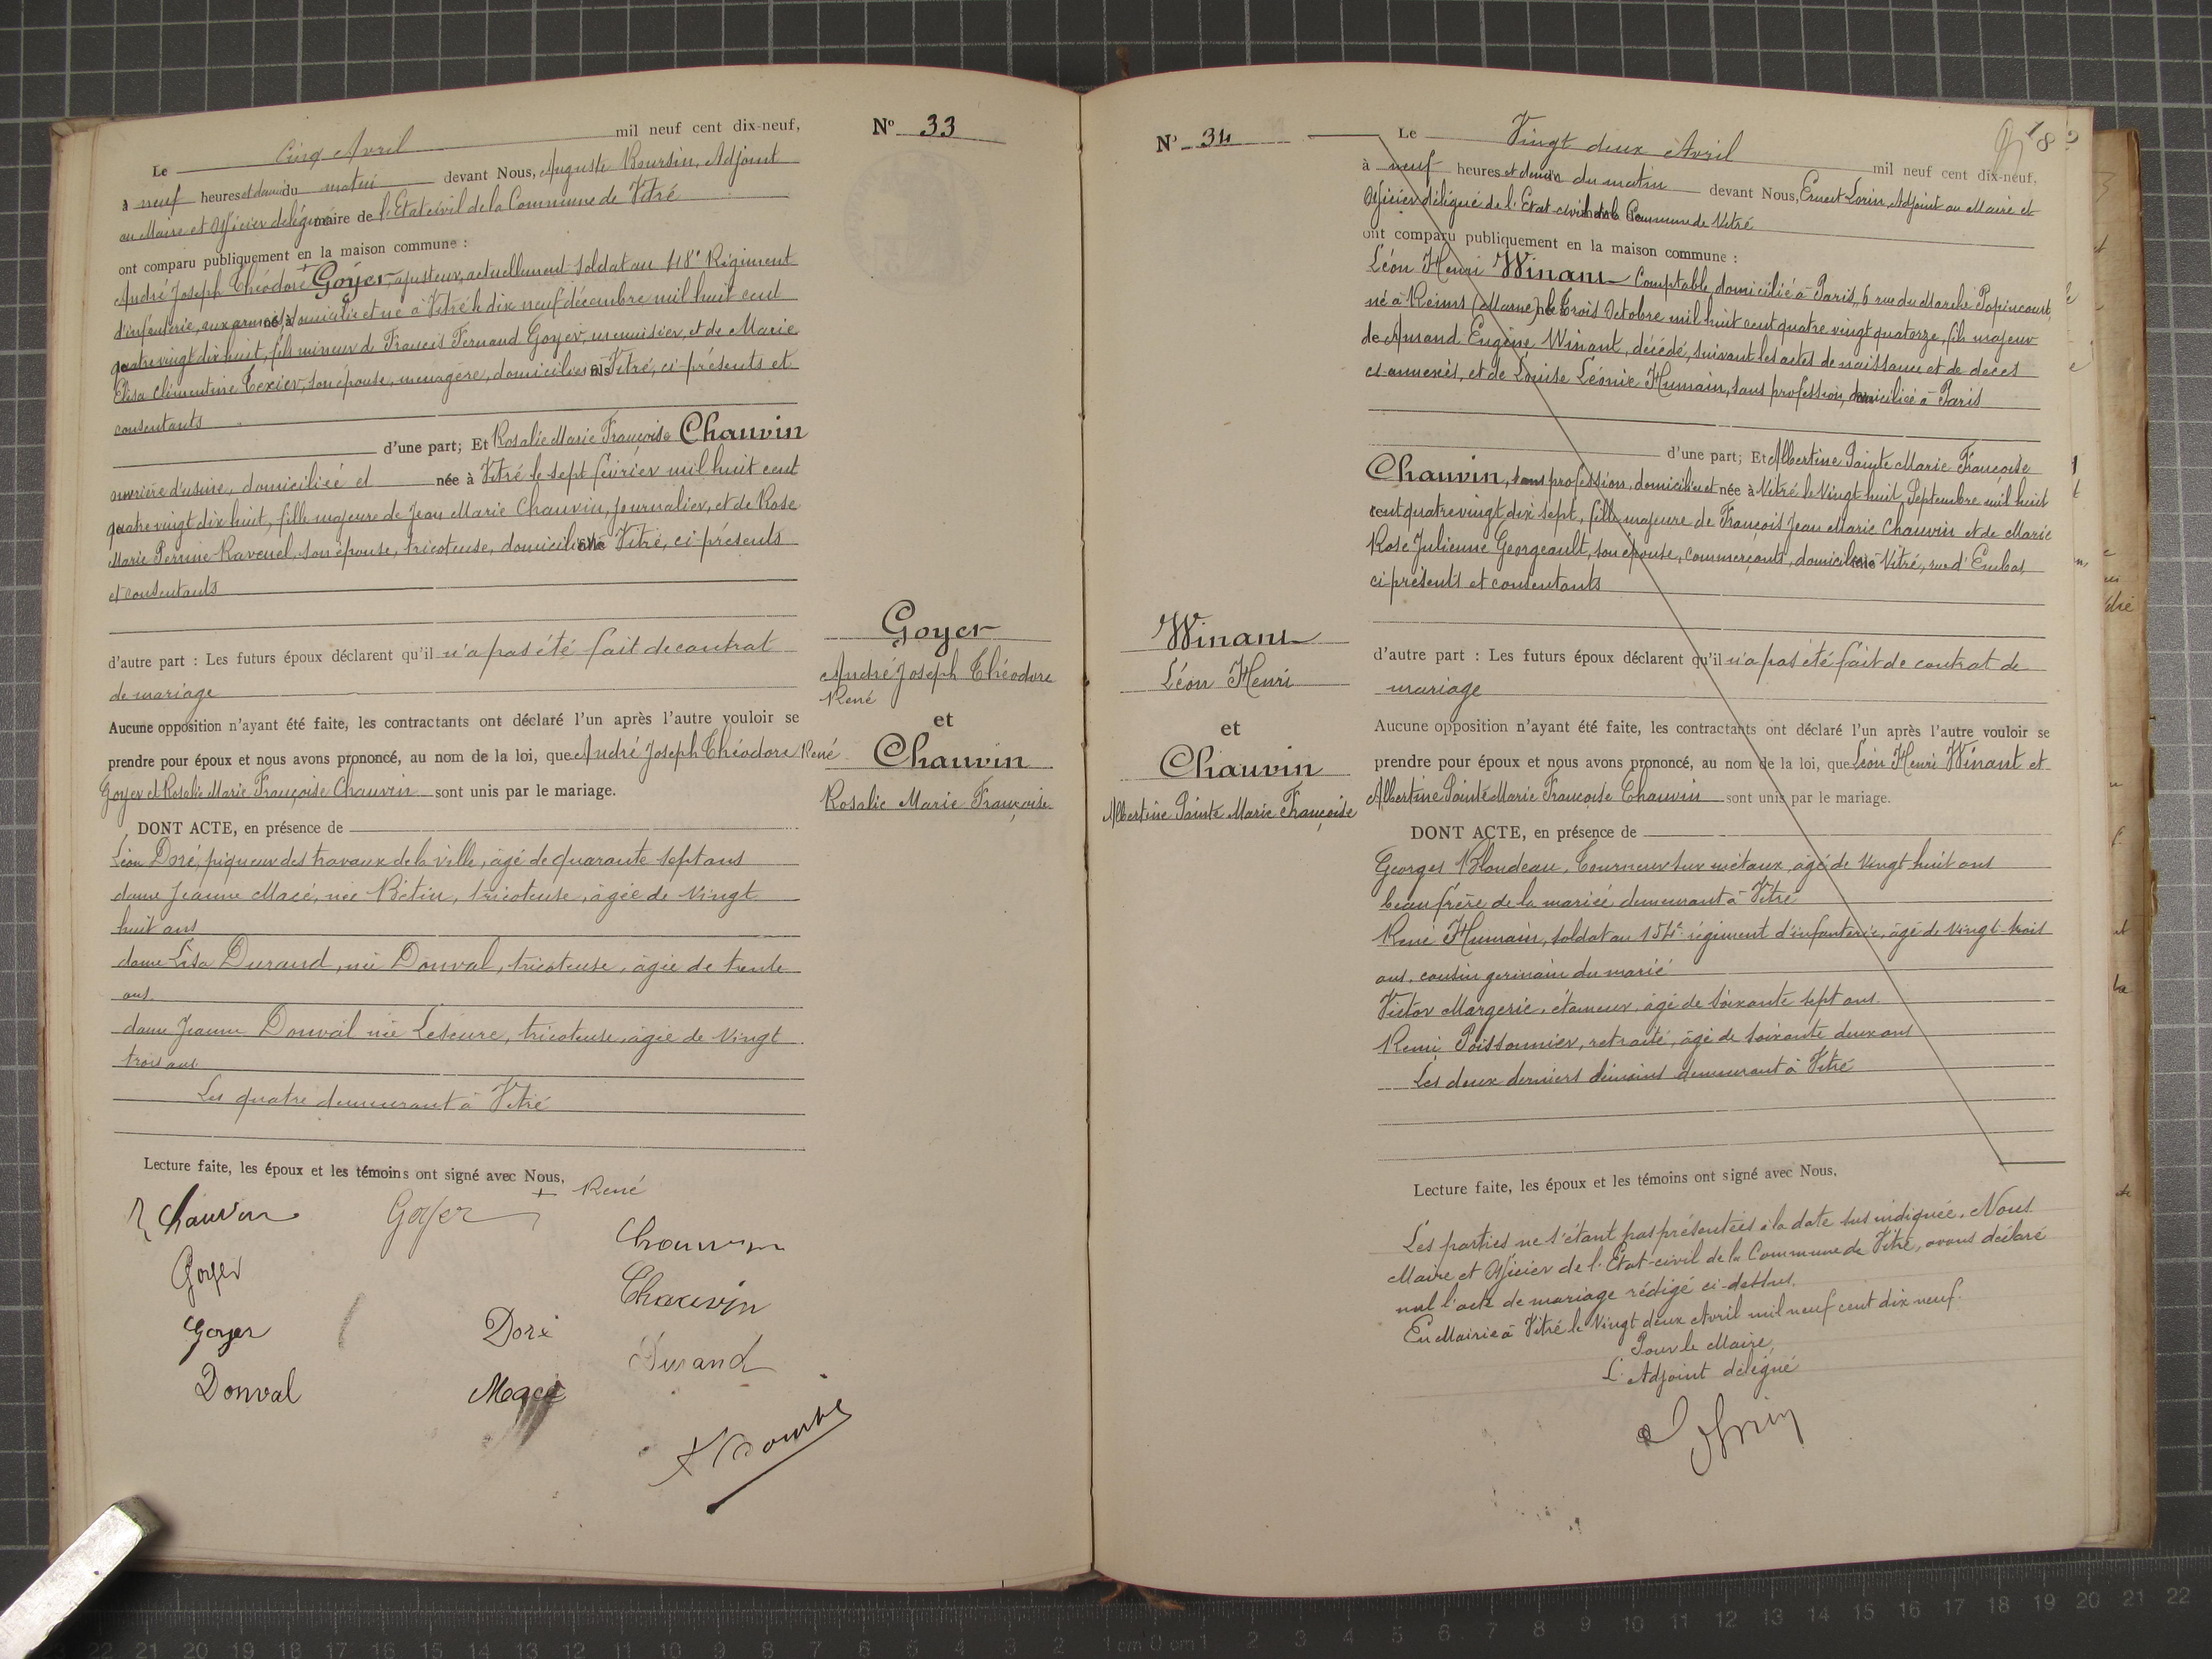 Le Cinq Avril mil neuf cent dix-neuf,
à neuf heures et demie du matin devant Nous, Auguste Boursin, Adjoint
au Maire et Officier délégué de l'Etat civil de la Commune de Vitré
ont comparu publiquement en la maison commune :
André Joseph Théodore + Goyer, ajusteur, actuellement soldat au 118e Régiment
d'infanterie, aux armées, domicilié et né à Vitré le dix neuf décembre mil huit cent
quatre vingt dix huit, fils mineur de Francis Fernand Goyer, menuisier, et de Marie
Elisa Clémentine Texier, son épouse, ménagère, domiciliés à Vitré, ci-présents et
consentants
d'une part; Et Rosalie Marie Françoise Chauvin
ouvrière d'usine, domiciliée et née à Vitré le sept février mil huit cent
quatre vingt dix huit, fille majeure de Jean Marie Chauvin, journalier, et de Rose
Marie Perrine Ravenel, son épouse, tricoteuse, domiciliés à Vitré, ci-présents
et consentants
d'autre part : Les futurs époux déclarent qu'il n'a pas été fait de contrat
de mariage
Aucune opposition n'ayant été faite, les contractants ont déclaré l'un après l'autre vouloir se
prendre pour époux et nous avons prononcé, au nom de la loi, que André Joseph Théodore René
Goyer et Rosalie Marie Françoise Chauvin sont unis par le mariage.
DONT ACTE, en présence de
Léon Doré, piqueur des travaux de la ville, âgé de quarante sept ans
dame Jeanne Macé, née Bétin, tricoteuse, âgée de vingt
huit ans
dame Lisa Durand, née Donval, tricoteuse, âgée de trente
ans
dame Jeanne Donval née Leseure, tricoteuse, âgée de vingt
trois ans
Les quatre demeurant à Vitré
Lecture faite, les époux et les témoins ont signé avec Nous,
+ René
R Chauvin
Goyer
Chauvin
Goyer
Chauvin
Goyer
Doré
Durand
Donval
Macé
N° 33
Goyer
André Joseph Théodore
René
et
Chauvin
Rosalie Marie Françoise
N° 34
Winant
Léon Henri
et
Chauvin
Albertine Sainte Marie Françoise
18
Le Vingt deux Avril mil neuf cent dix-neuf,
à neuf heures et demie du matin devant Nous, Ernest Lorin, Adjoint au Maire et
Officier délégué de l'Etat-civil de la Commune de Vitré
ont comparu publiquement en la maison commune :
Léon Henri Winant Comptable, domicilié à Paris, 6 rue du Marché Popincourt,
né à Reims (Marne) le trois Octobre mil huit cent quatre vingt quatorze, fils majeur
de Armand Eugène Winant, décédé, suivant les actes de naissance et de décès
ci annexés, et de Louise Léonie Humain, sans profession, domiciliée à Paris
d'une part; Et Albertine Sainte Marie Françoise
Chauvin, sans profession, domiciliée et née à Vitré le Vingt huit Septembre mil huit
cent quatre vingt dix sept, fille majeure de François Jean Marie Chauvin et de Marie
Rose Julienne Georgeault, son épouse, commerçants, domiciliés à Vitré, rue d'Embas,
ci présents et consentants
d'autre part : Les futurs époux déclarent qu'il n'a pas été fait de contrat de
mariage
Aucune opposition n'ayant été faite, les contractants ont déclaré l'un après l'autre vouloir se
prendre pour époux et nous avons prononcé, au nom de la loi, que Léon Henri Winant et
Albertine Sainte Marie Françoise Chauvin sont unis par le mariage.
DONT ACTE, en présence de
Georges Blondeau, Tourneur sur métaux, âgé de vingt huit ans
beau frère de la mariée, demeurant à Vitré
René Humain, soldat au 154e régiment d'infanterie, âgé de vingt-trois
ans, cousin germain du marié
Victor Margerie, étameur, âgé de soixante sept ans
Remi Poissonnier, retraité, âgé de soixante deux ans
Les deux derniers témoins demeurant à Vitré
Lecture faite, les époux et les témoins ont signé avec Nous,
Les parties ne s'étant pas présentées à la date sus indiquée, Nous
Maire et Officier de l'Etat-civil de la Commune de Vitré, avons déclaré
nul l'acte de mariage rédigé ci-dessus.
En Mairie à Vitré le Vingt deux Avril mil neuf cent dix neuf.
Pour le Maire,
L'Adjoint délégué
Lorin
22 21 20 19 18 17 16 15 14 13 12 11 10 9 8 7 6 5 4 3 2 1 cm 0 cm 1 2 3 4 5 6 7 8 9 10 11 12 13 14 15 16 17 18 19 20 21 22